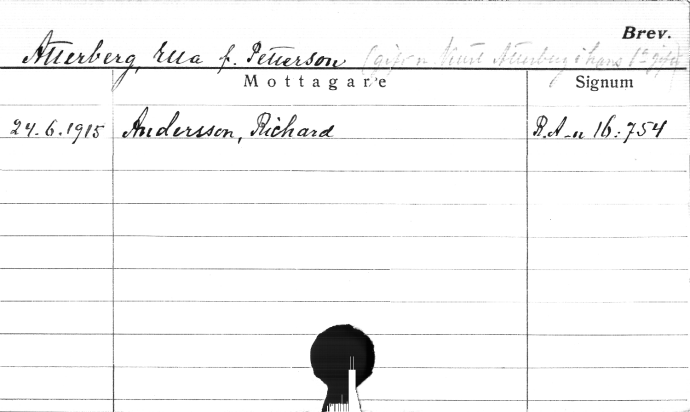 Brev.
Atterberg, Ella f. Petterson (gift m. Kurt Atterberg i hans 1:a gifte)
Mottagare Signum
24.6.1915 Andersson, Richard R.A-n 16:754